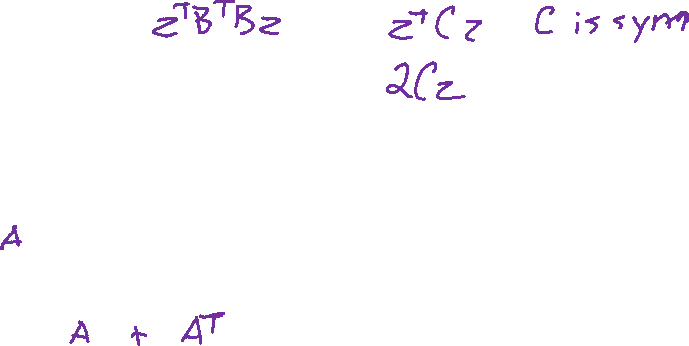 zᵀBᵀBz zᵀCz C is sym
2Cz
A
A + Aᵀ